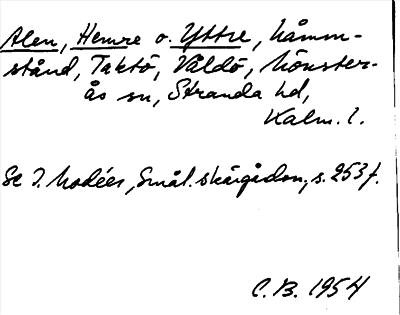 Alen, Hemre o. Yttre, håmm-
stånd, Taktö, Våldö, Mönster-
ås sn, Stranda hd,
Kalm. l.
Se I. Modéer, Smål. skärgården, s. 253 f.
C. B. 1954